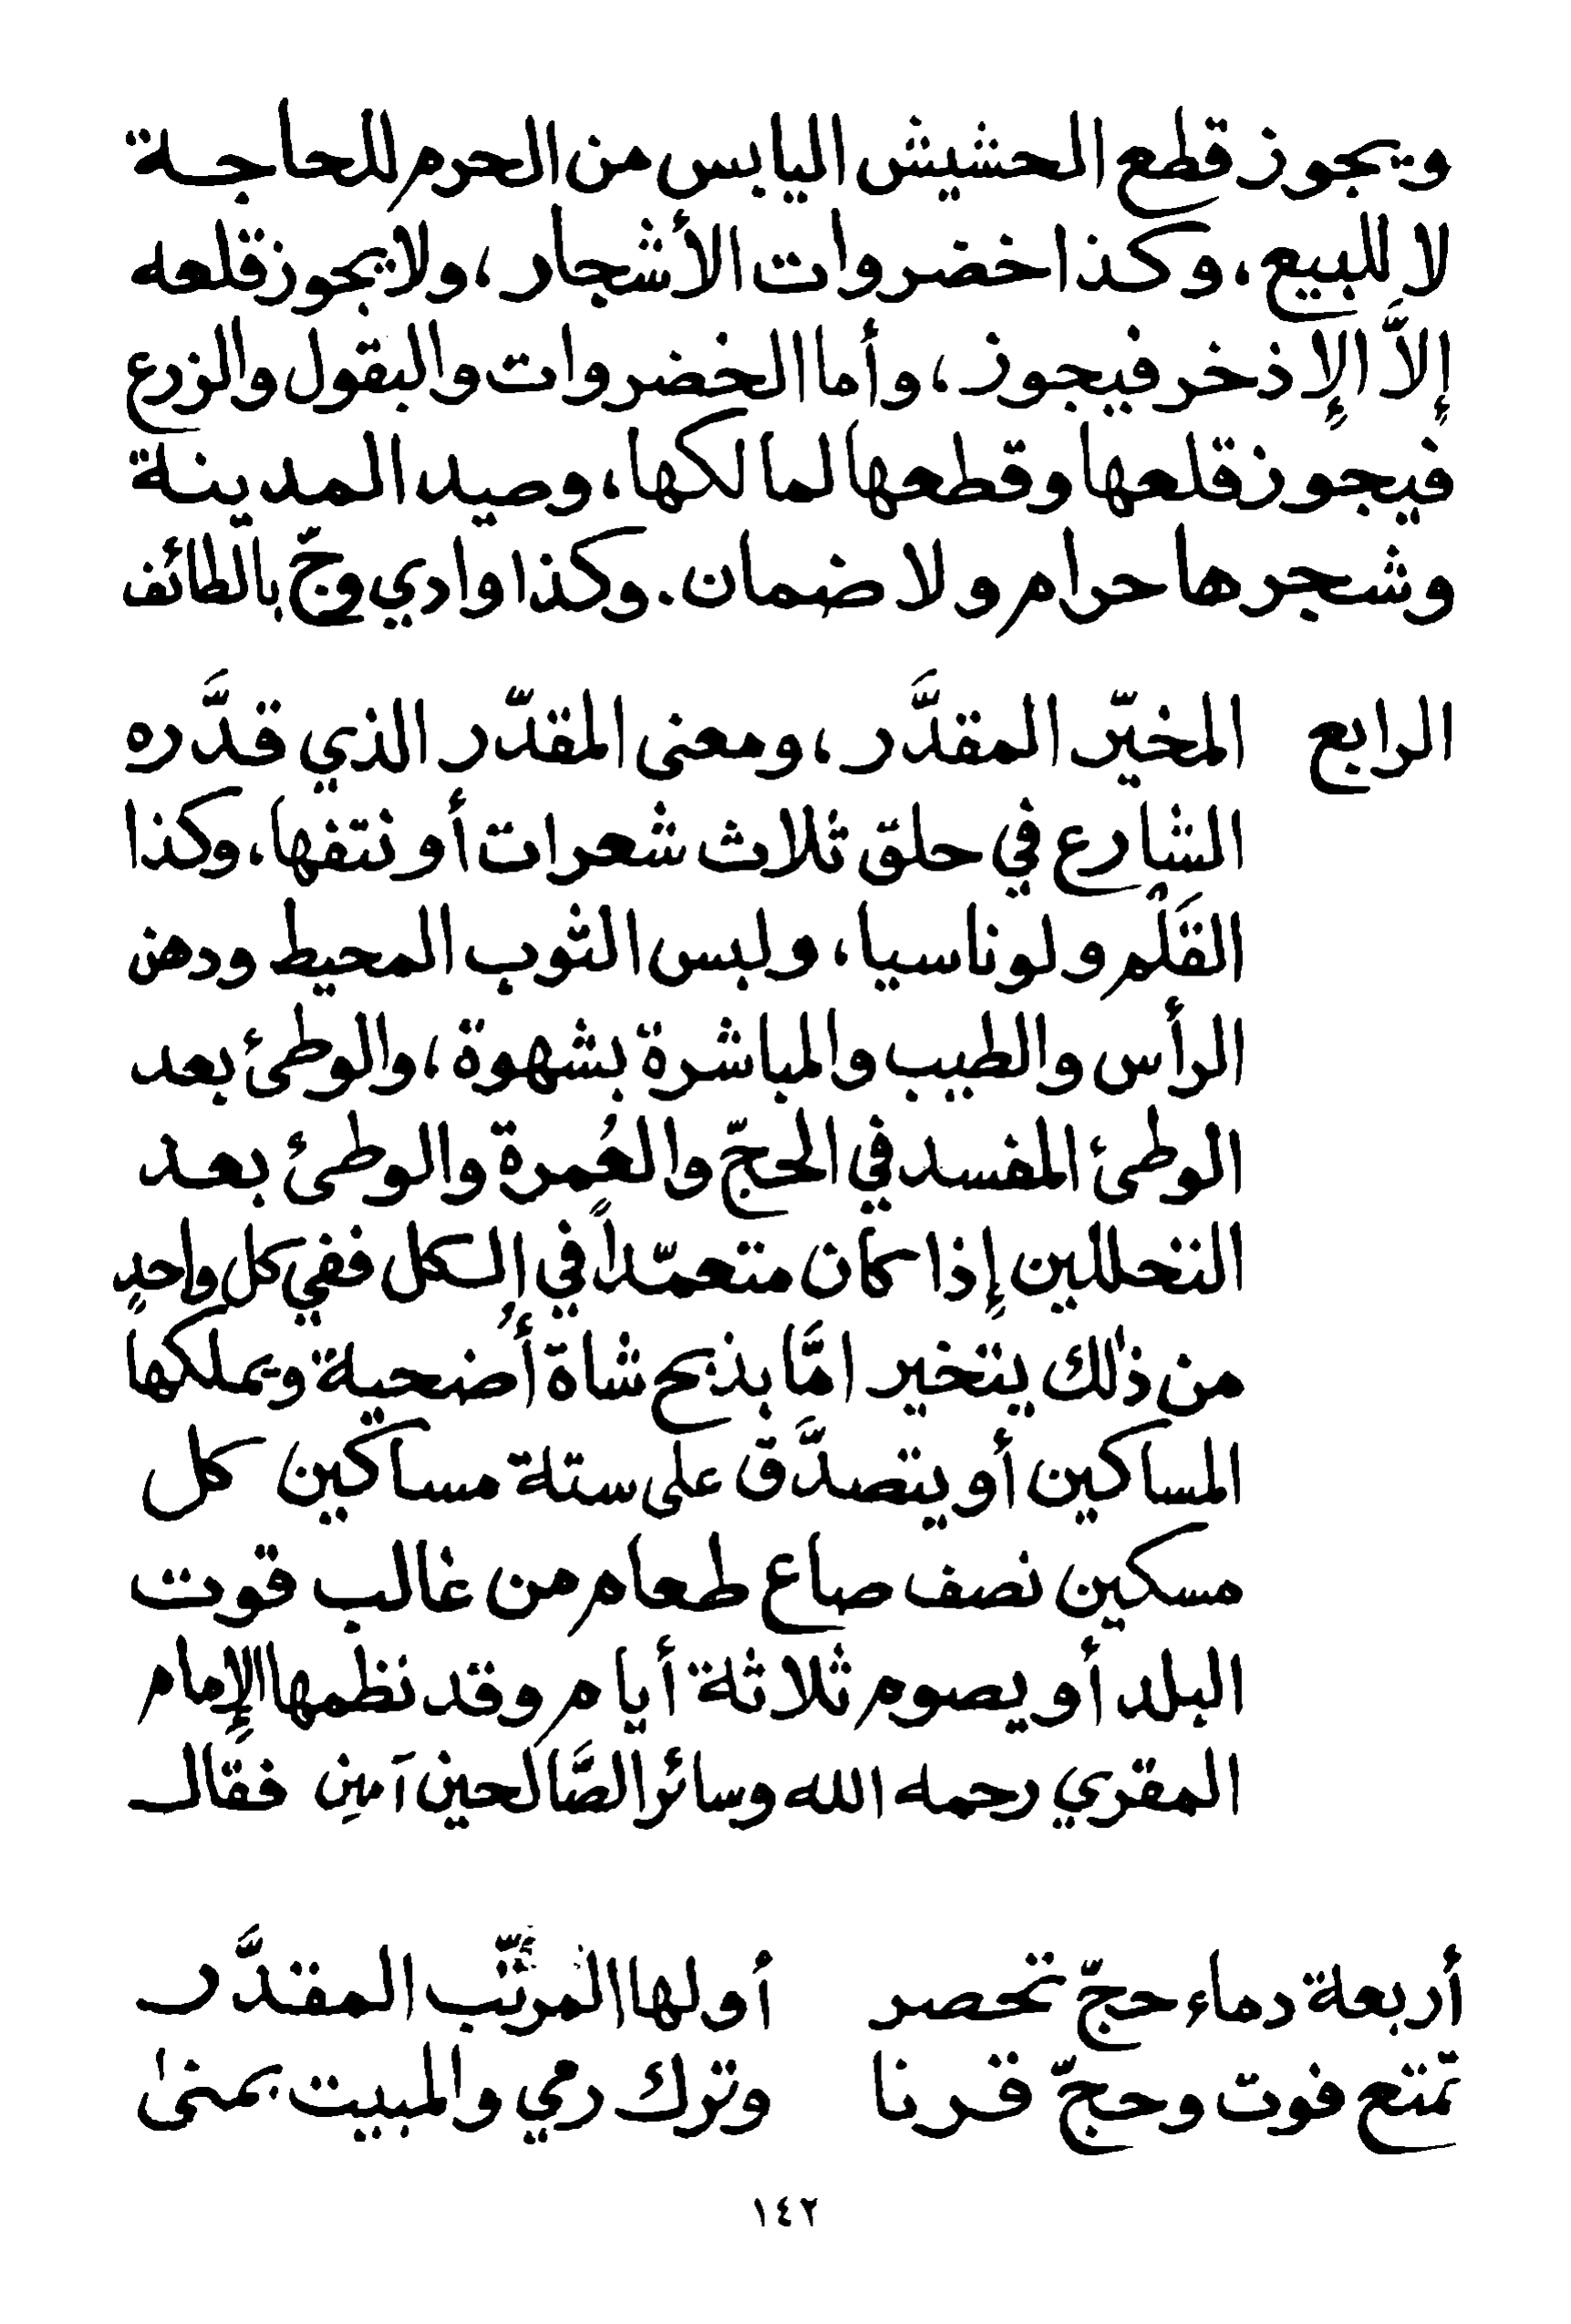 ويجوز قطع الحشيش اليابس من الحرم للحاجة
لا للبيع، وكذا خضروات الأشجار، ولا يجوز قلعه
إلاَّ الإِذخر فيجوز، وأما الخضروات والبقول والزرع
فيجوز قلعها وقطعها لمالكها، وصيد المدينة
وشجرها حرام ولا ضمان. وكذا وادي وجّ بالطائف
الرابع المخيّر المقدَّر، ومعنى المقدّر الذي قدَّره
الشارع في حلق ثلاث شعرات أو نتفها، وكذا
القَلْم ولو ناسيا، ولبس الثوب المحيط ودهن
الرأس والطيب والمباشرة بشهوة، والوطئ بعد
الوطئ المفسد في الحجّ والعُمرة والوطئ بعد
التحللين إِذا كان متعمّداً في الكل ففي كل واحدٍ
من ذلك يتخير امَّا بذبح شاة أُضحية ويملكها
المساكين أو يتصدَّق على ستة مساكين كل
مسكين نصف صاع طعام من غالب قوت
البلد أو يصوم ثلاثة أيام وقد نظمها الإِمام
المقري رحمه الله وسائر الصَّالحين آمين فقال
أربعة دماء حجّ تحصر أولها المرتّب المقدَّر
تمتع فوت وحجّ قرنا وترك رمي والمبيت بمنى
١٤٢